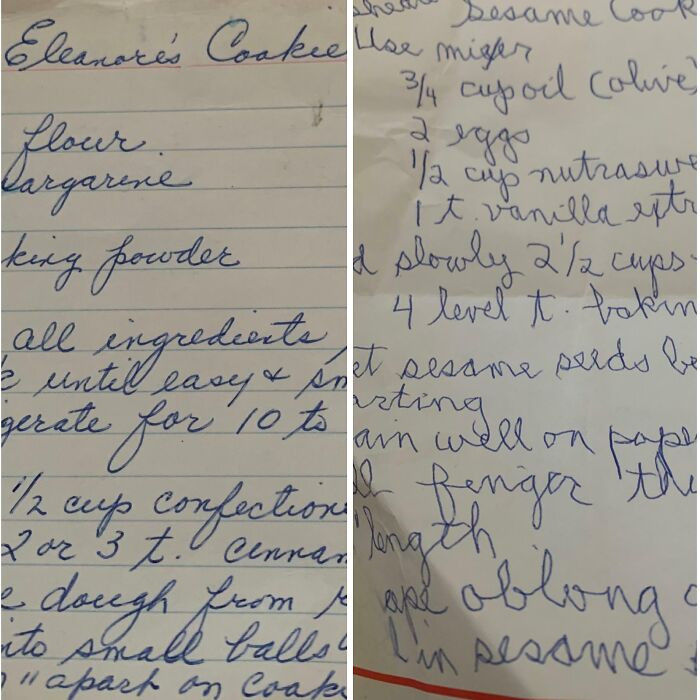 Eleanore's Cookie
flour
margarine
king powder
all ingredients,
until easy & sm
gerate for 10 to
1/2 cup confection
2 or 3 t. cinnam
dough from r
into small balls
" apart on Cooki
Sesame Cook
Use mixer
3/4 cup oil (olive)
2 eggs
1/2 cup nutraswe
1 t. vanilla extr
d slowly 2 1/2 cups
4 level t. bakin
et sesame seeds be
arting
ain well on pape
ll fenger thi
" length
ape oblong o
l in sesame s